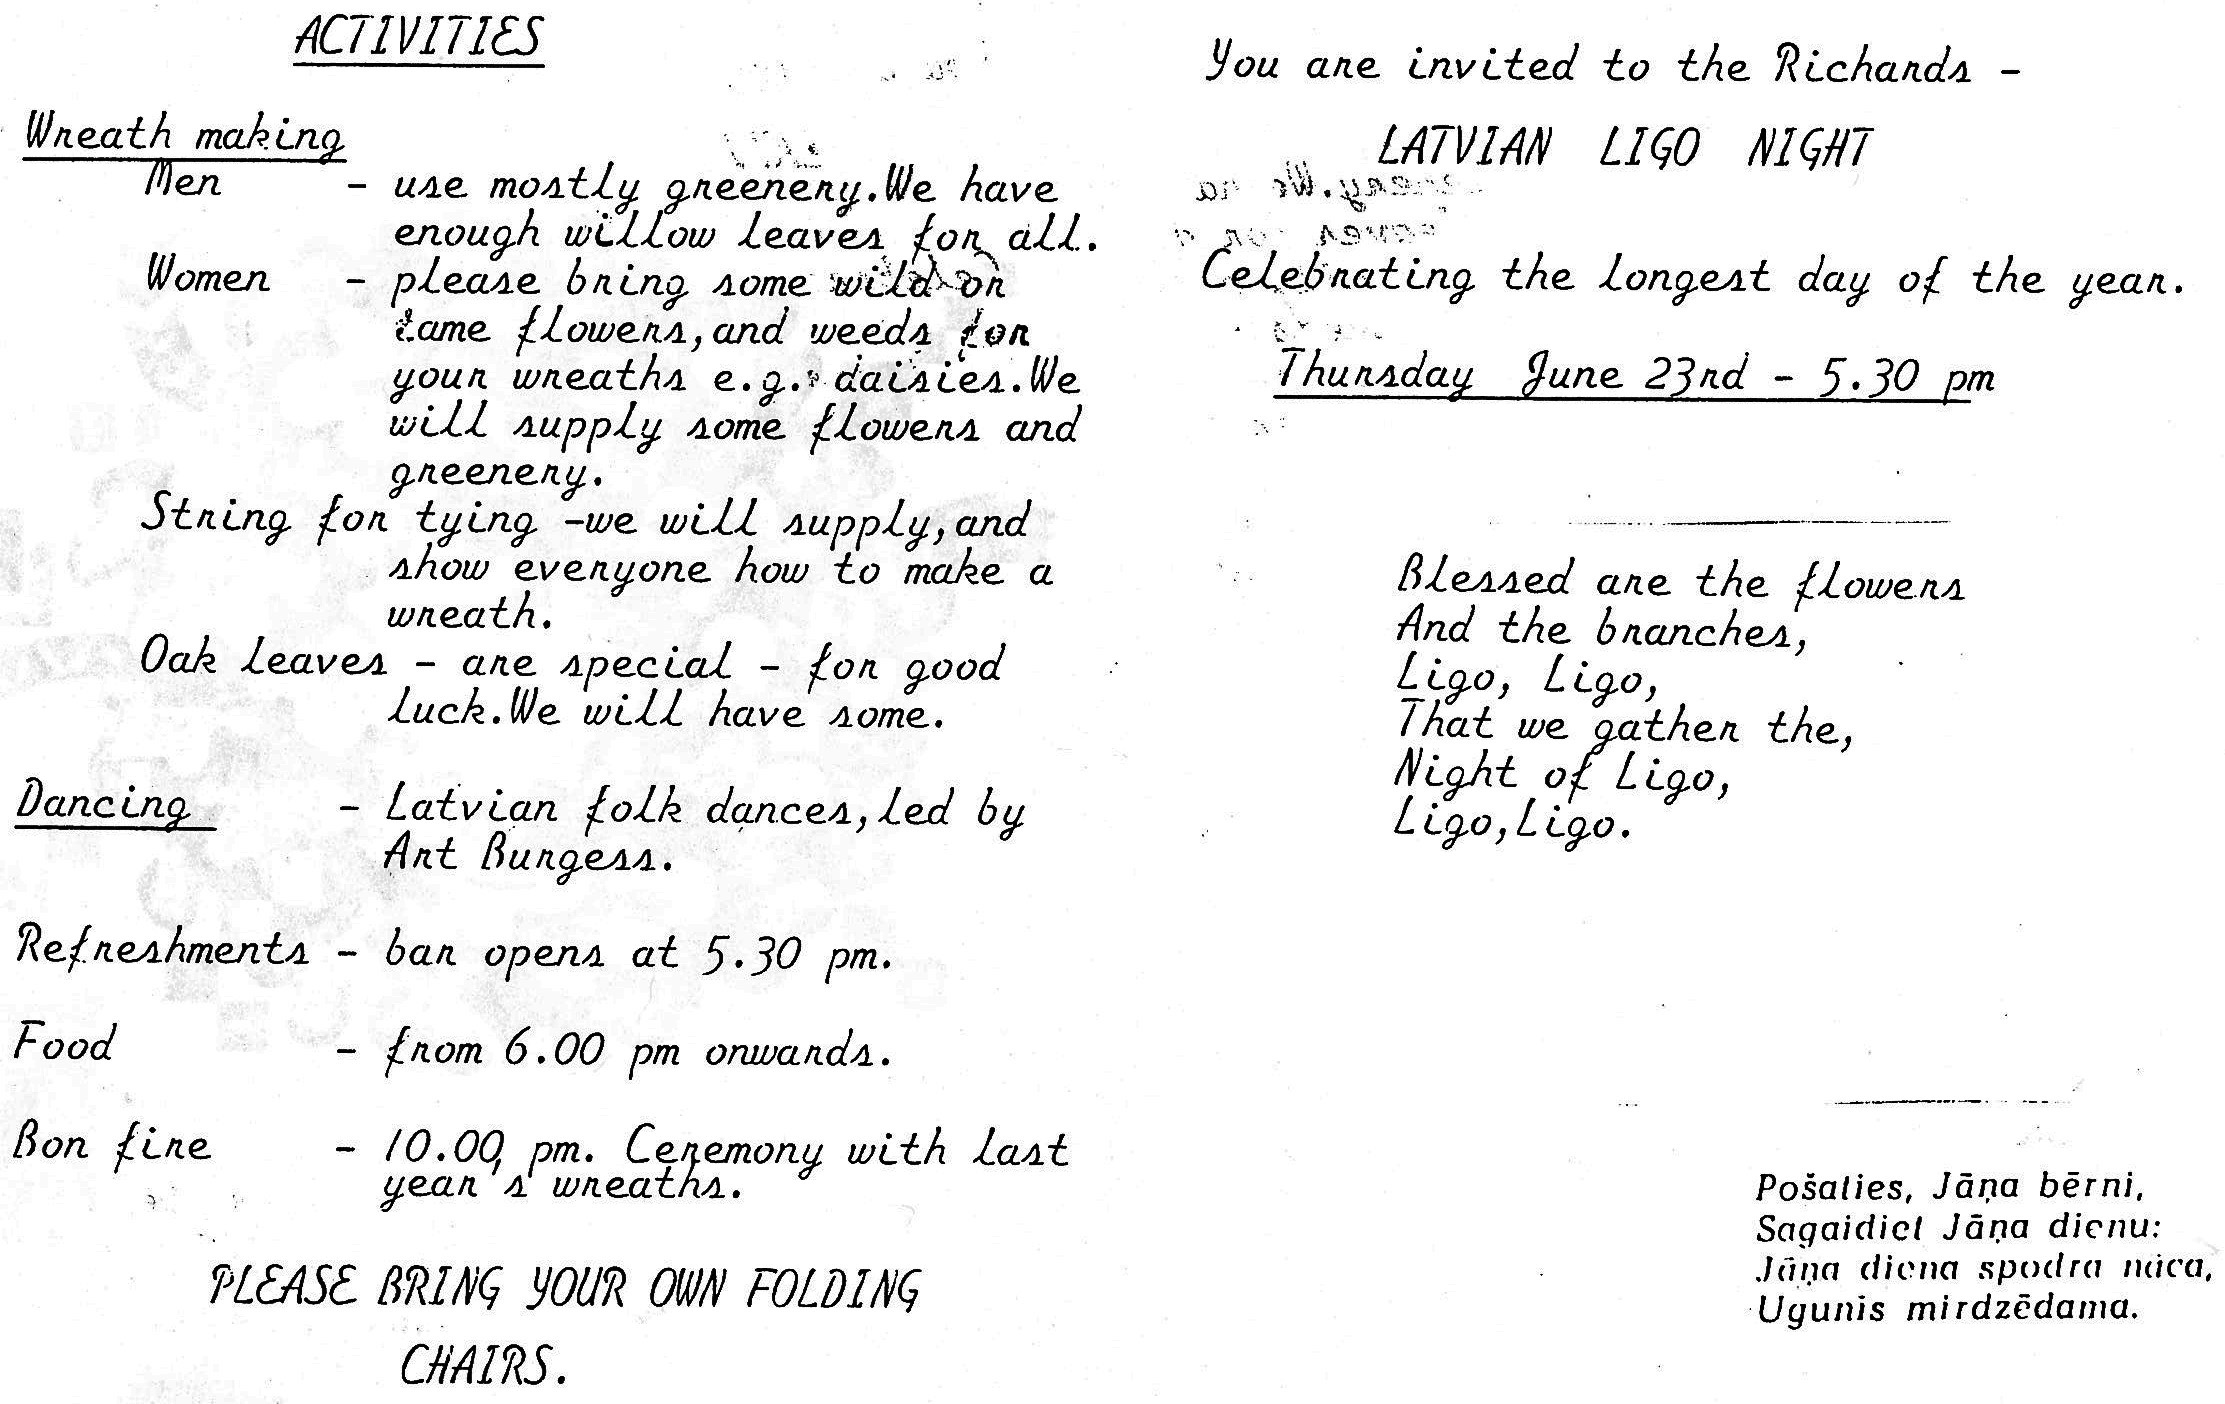 ACTIVITIES
Wreath making
Men - use mostly greenery.We have
enough willow leaves for all.
Women - please bring some wild or
tame flowers,and weeds for
your wreaths e.g. daisies.We
will supply some flowers and
greenery.
String for tying -we will supply,and
show everyone how to make a
wreath.
Oak leaves - are special - for good
luck.We will have some.
Dancing - Latvian folk dances,led by
Art Burgess.
Refreshments - bar opens at 5.30 pm.
Food - from 6.00 pm onwards.
Bon fire - 10.00 pm. Ceremony with last
year's wreaths.
PLEASE BRING YOUR OWN FOLDING
CHAIRS.
You are invited to the Richards -
LATVIAN LIGO NIGHT
Celebrating the longest day of the year.
Thursday June 23rd - 5.30 pm
Blessed are the flowers
And the branches,
Ligo, Ligo,
That we gather the,
Night of Ligo,
Ligo,Ligo.
Pošaties, Jāņa bērni,
Sagaidiet Jāņa dienu:
Jāņa diena spodra nāca,
Ugunis mirdzēdama.